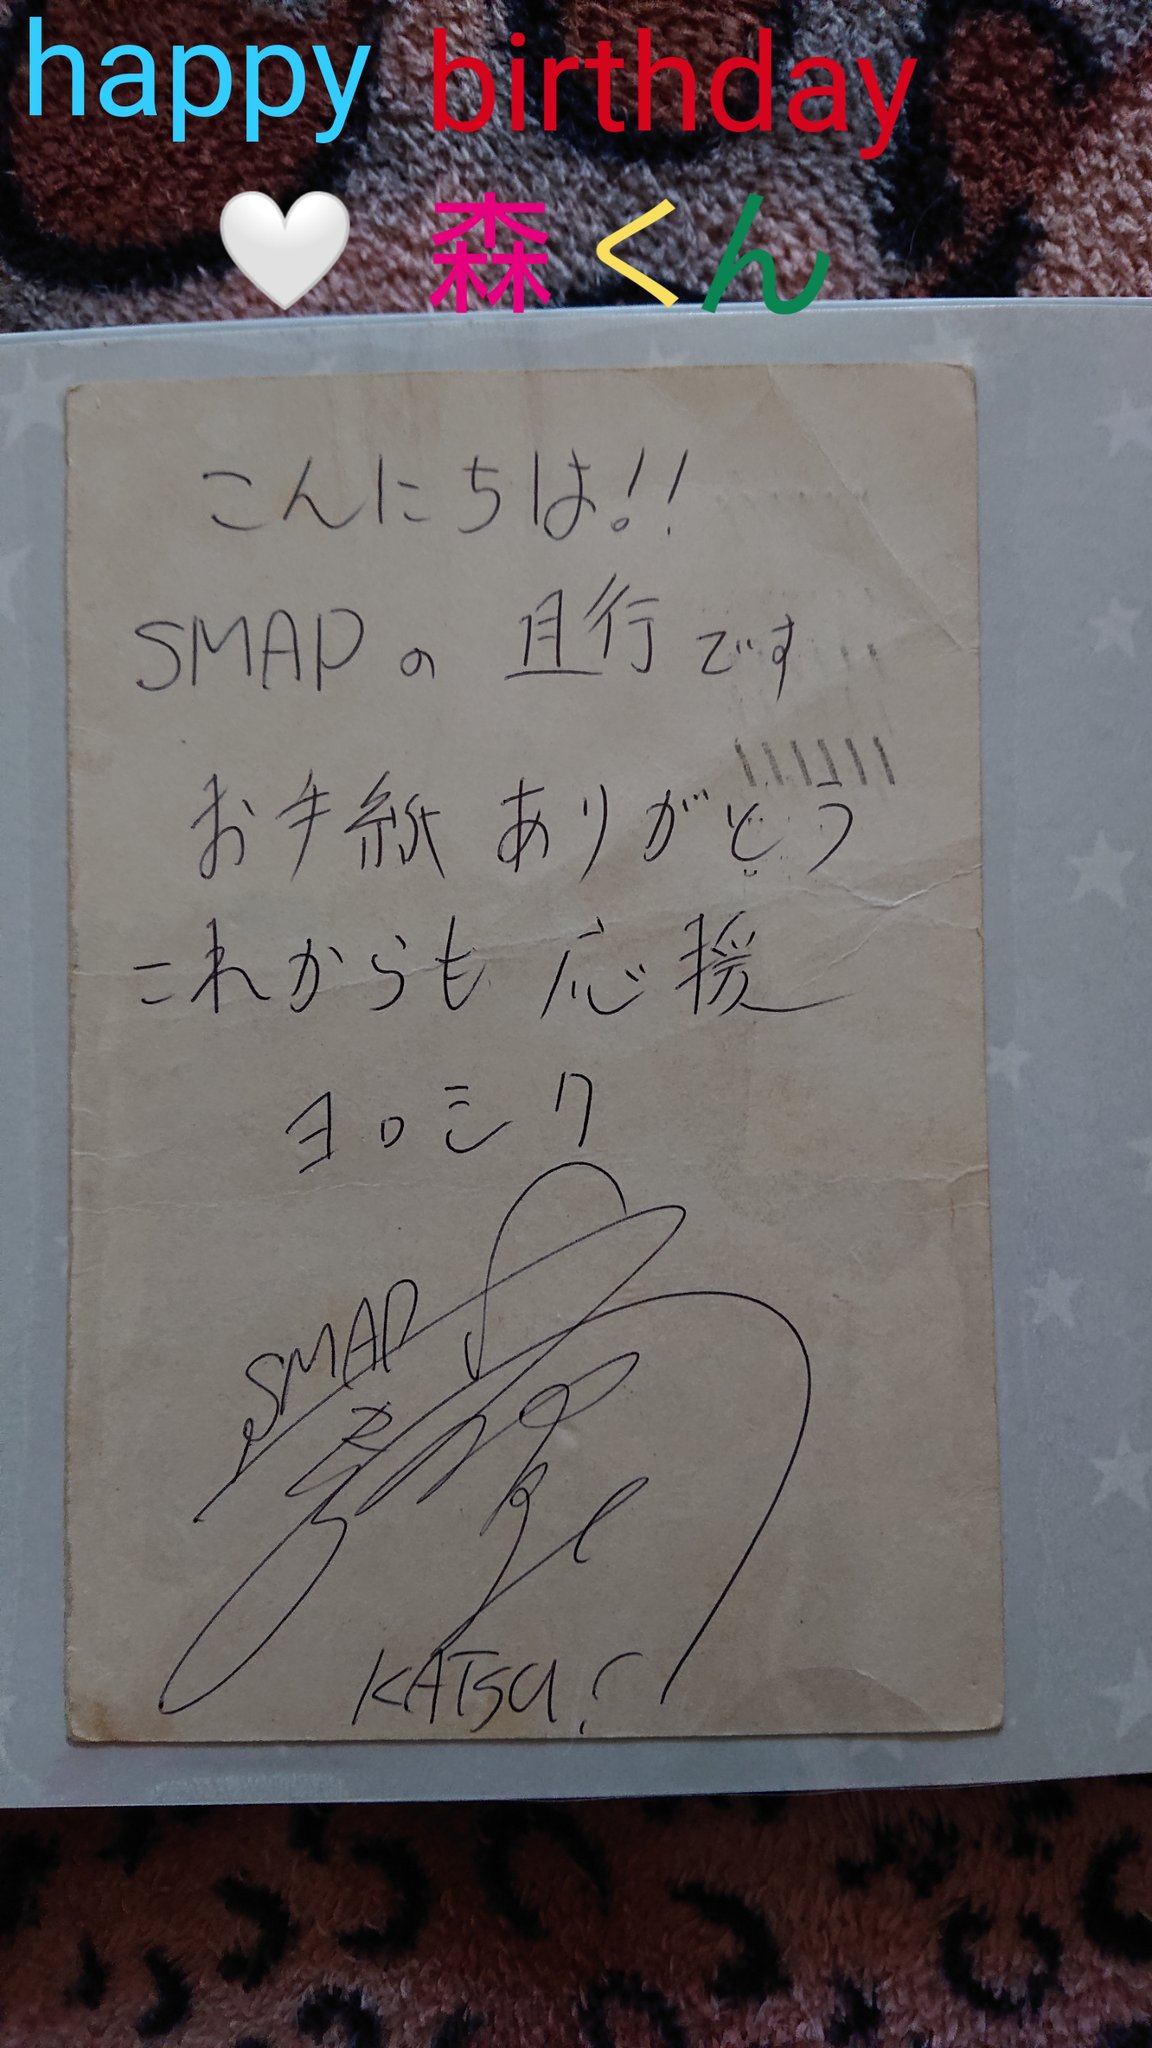 happy birthday
🤍 森くん
こんにちは!!
SMAPの 且行です
お手紙 ありがとう
これからも 応援
ヨロシク
SMAP
KATSU